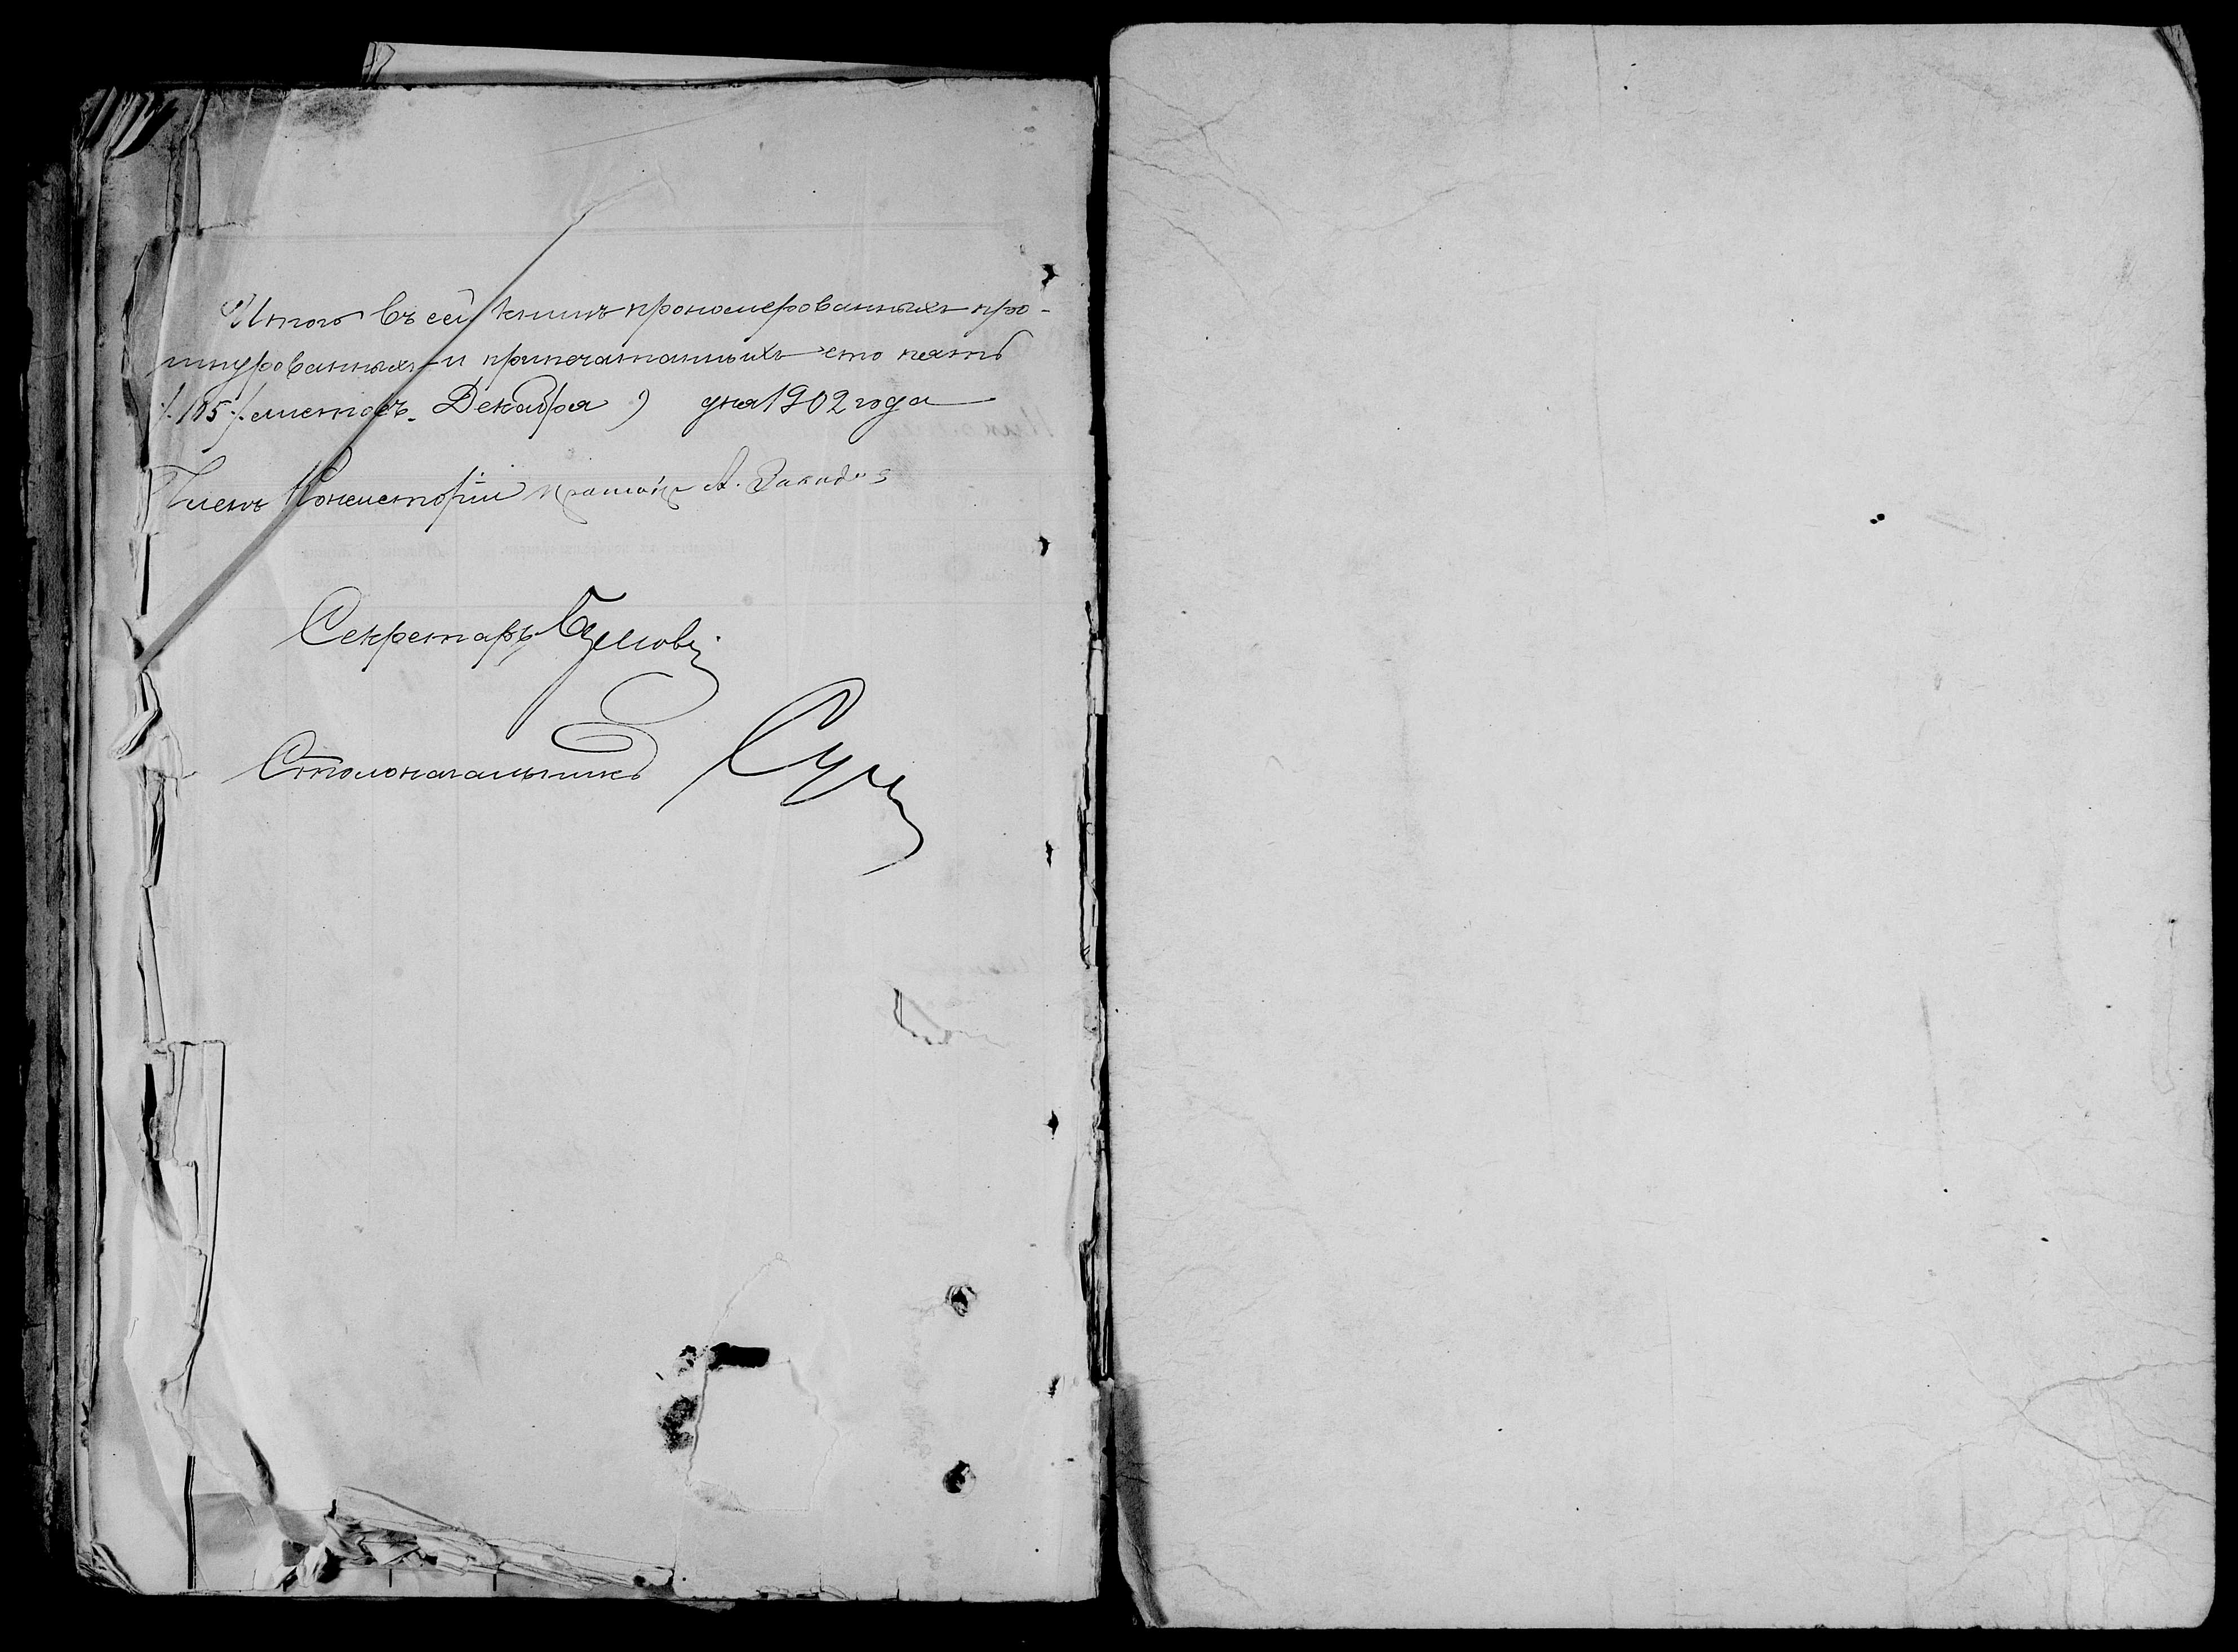 Итого въ сей книгѣ прономерованныхъ про-
шнурованныхъ и припечатанныхъ сто пять
/.105./ листовъ. Декабря 9 дня 1902 года
Членъ Консисторіи А.
Секретарь
Столоначальникъ